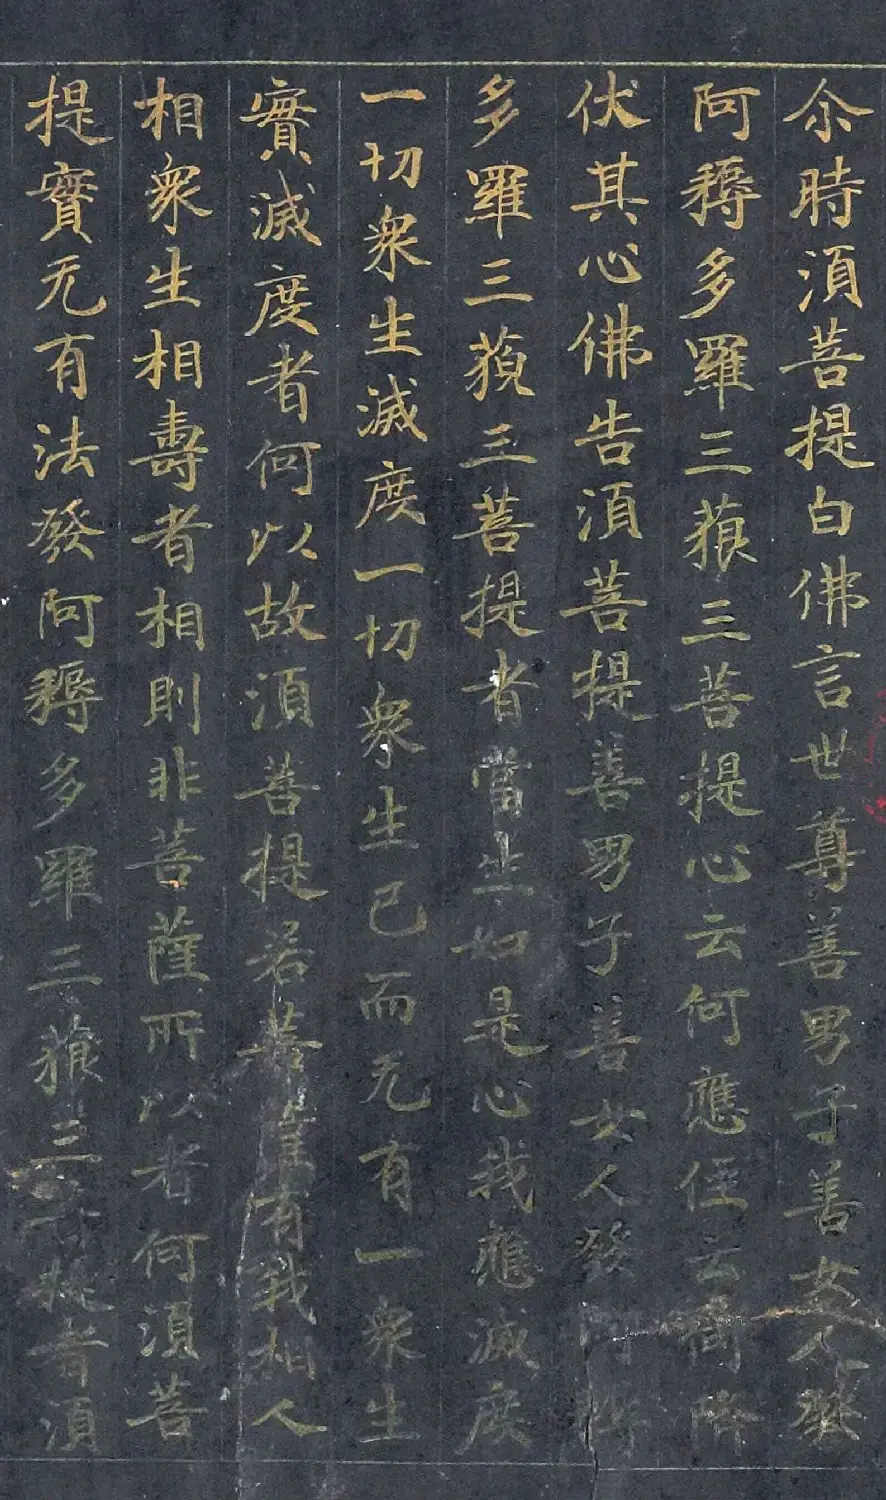 尒時須菩提白佛言世尊善男子善女人發
阿耨多羅三藐三菩提心云何應住云何降
伏其心佛告須菩提善男子善女人發阿耨
多羅三藐三菩提者當生如是心我應滅度
一切衆生滅度一切衆生已而无有一衆生
實滅度者何以故須菩提若菩薩有我相人
相衆生相壽者相則非菩薩所以者何須菩
提實无有法發阿耨多羅三藐三菩提者須